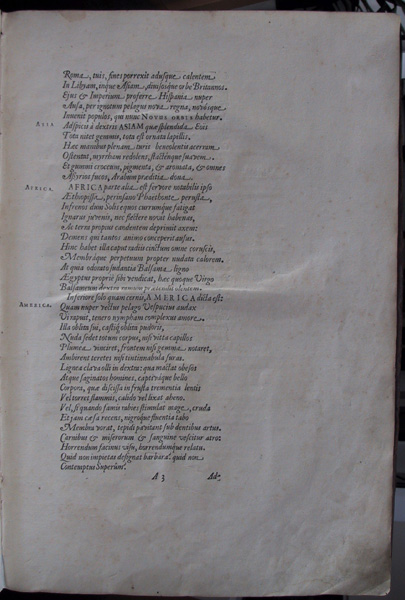 Roma, tuis, fines porrexit adusque calentem
In Libyam, inque Asiam, diuisosque orbe Britannos.
Eius & Imperium proferre Hispania nuper
Ausa, per ignotum pelagus noua regna, nouosque
Inuenit populos, qui nunc NOVUS ORBIS habetur.
ASIA.
Adspicis à dextris ASIAM quae splendida Eois
Tota nitet gemmis, tota est ornata lapillis.
Haec manibus plenam turis beneolentis acerram
Ostentat, myrrham redolens, stactenque suauem.
Et gummi croceum, pigmenta, & aromata, & omnes
Assyrios sucos, Arabum praediuia dona.
AFRICA.
AFRICA parte alia est feruore notabilis ipso
Aethiopissa, perinsano Phaethonte perusta,
Infrenos dum Solis equos currumque fatigat
Ignarus iuuenis, nec flectere nouit habenas,
Ac terra propius candentem deprimit axem:
Demens qui tantos animo conceperit ausus:
Hinc habet illa caput radiis cinctum omne coruscis,
Membráque perpetuum propter nudata calorem.
At quia odorato sudantia Balsama ligno
Aegyptus propriè sibi vendicat, haec quoque Virgo
Balsameum dextra ramum praetendit olentem.
AMERICA.
Inferiore solo quam cernis, AMERICA dicta est:
Quam nuper vectus pelago Vespucius audax
Vi rapuit, tenero nympham complexus amore.
Illa oblita sui, castiq́ oblita pudoris,
Nuda sedet totum corpus, nisi vitta capillos
Plumea vinciret, frontem nisi gemma notaret,
Ambirent teretes nisi tintinnabula suras.
Lignea claua olli in dextra: qua mactat obesos
Atque saginatos homines, captiuaque bello
Corpora, quae discissa in frusta trementia lentis
Vel torret flammis, calido vel lixat aheno.
Vel, si quando famis rabies stimulat mage, cruda
Et iam caesa recens, nigroque fluentia tabo
Membra vorat, tepidi pauitant sub dentibus artus:
Carnibus & miserorum & sanguine vescitur atro:
Horrendum facinus visu, horrendumque relatu.
Quid non impietas designat barbara? quid non
Contemptus Superûm?
A 3
Ad-